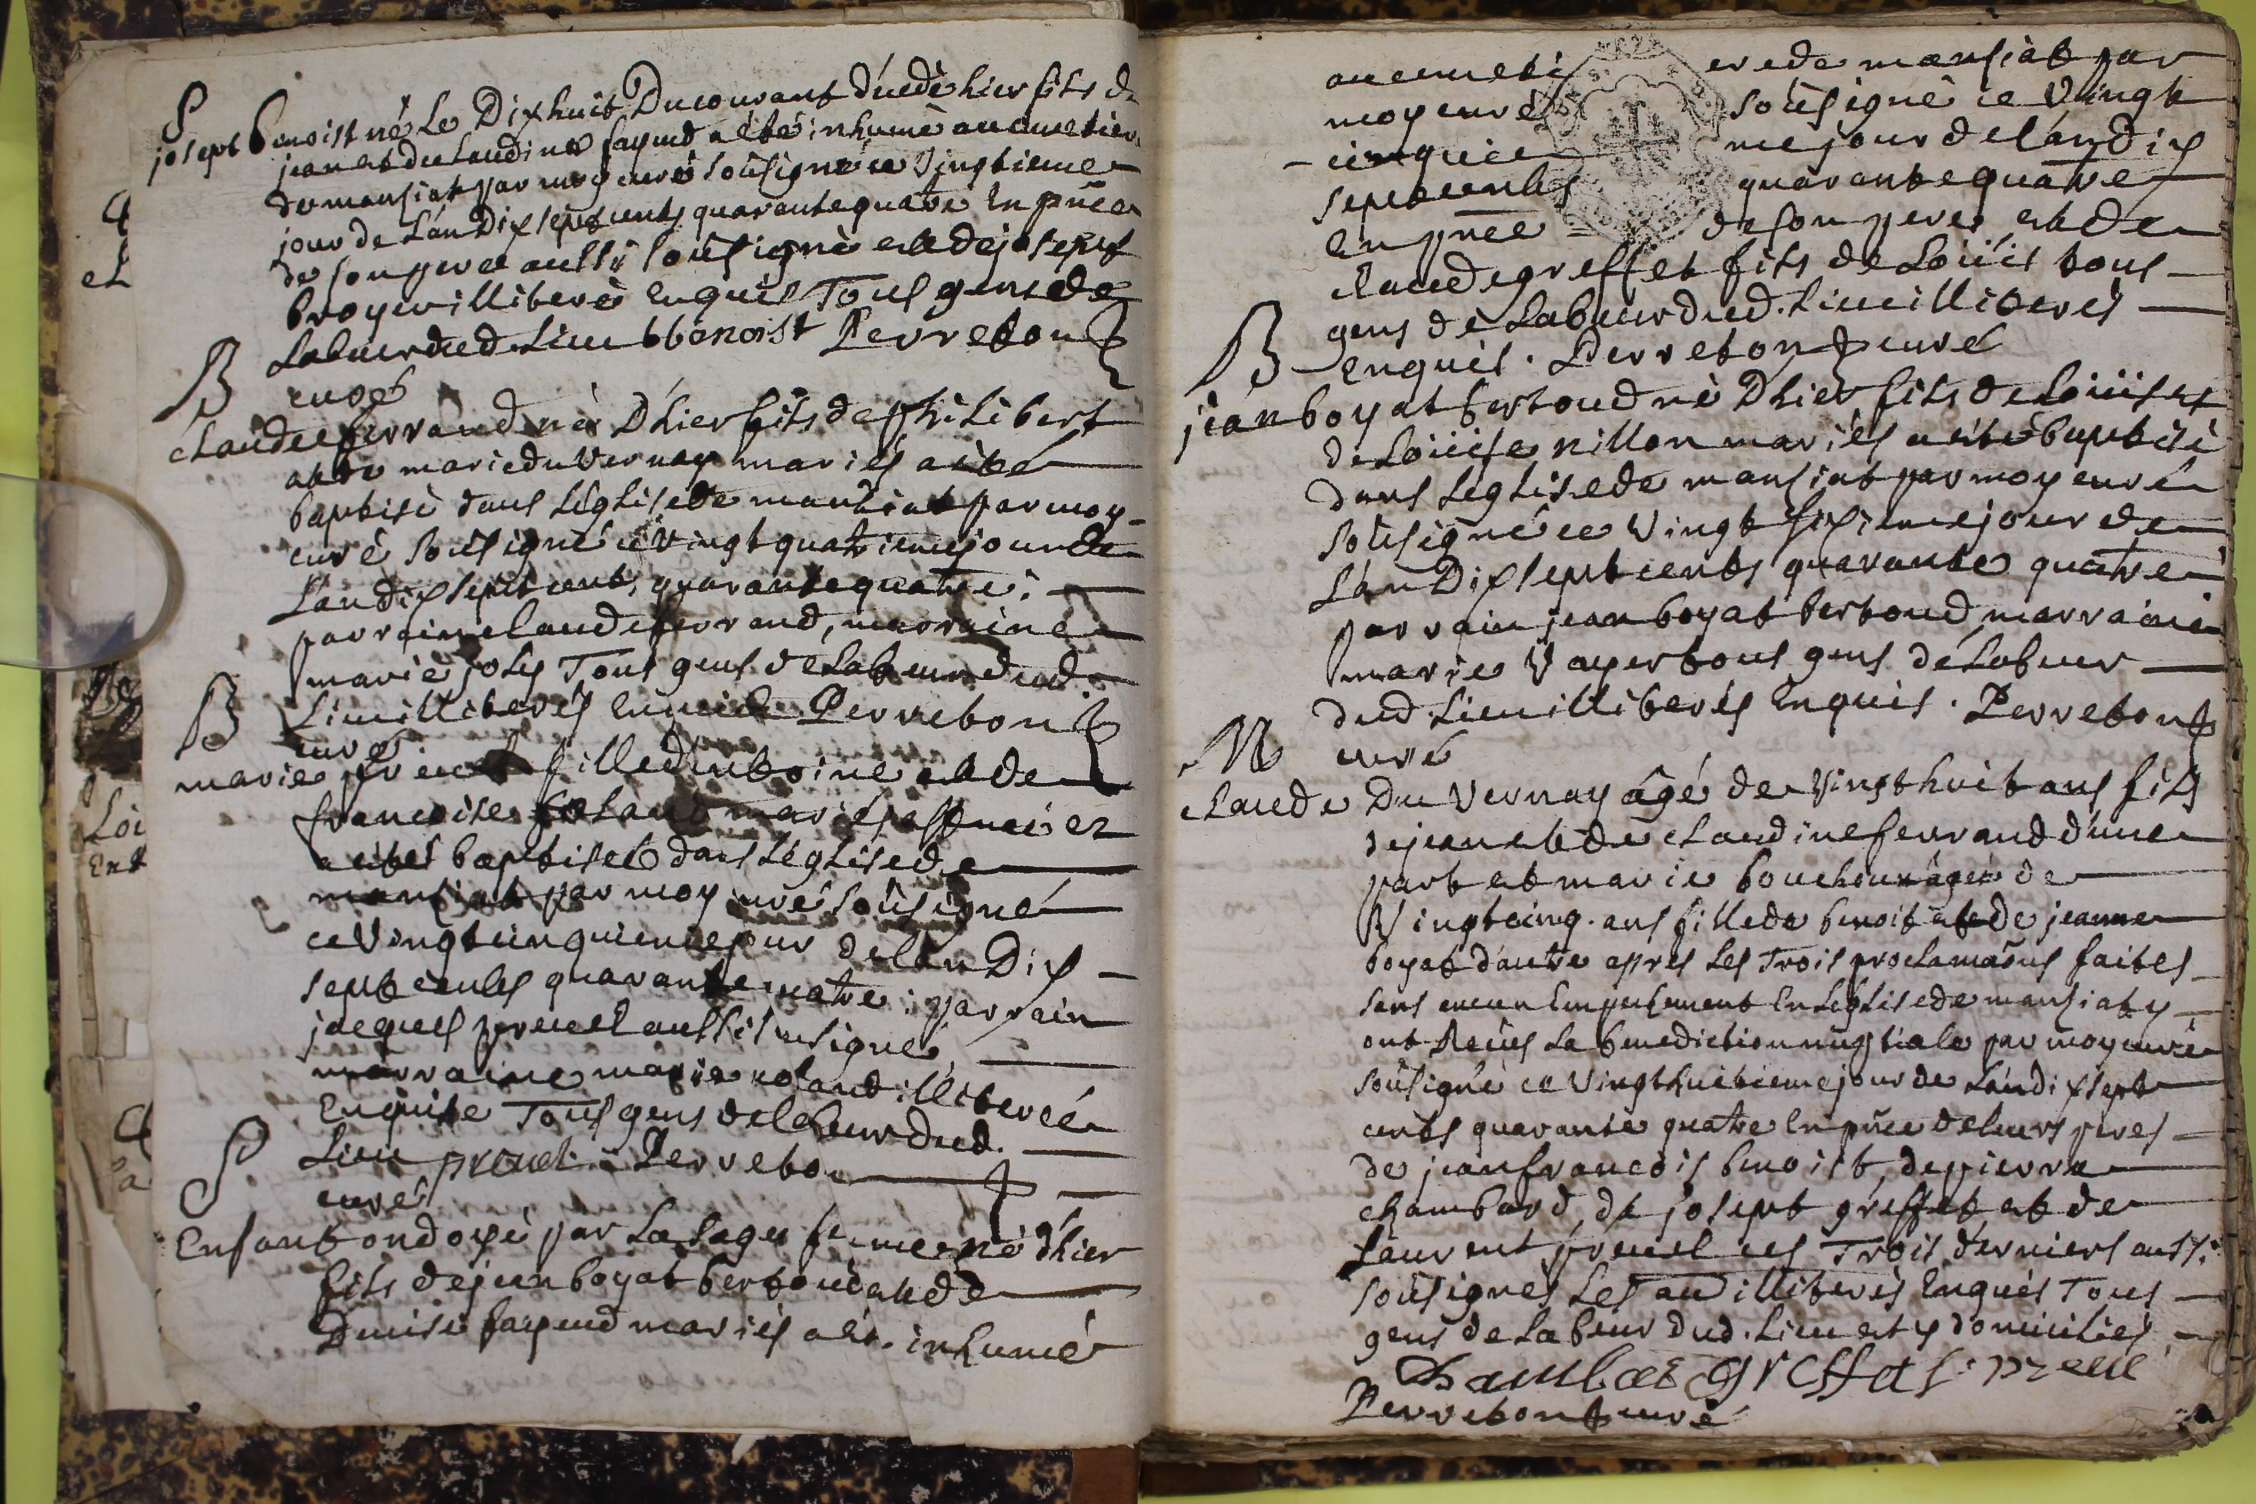 S
josept benoist né Le Dix huit Du courant décédé hier fils de
jean et de claudine fayend a été inhumé au cimetiere
de mansiat par moy curé soûsigné ce vingtieme
jour de L'an Dix sept cents quarante quatre En pn̄ce
de son pere aussy soûsigné et de josept
broyer illiteré Enquis Tous gens de
Labeur dud. Lieu bbenoist Perreton
curé
B
claude ferrand né D'hier fils de philibert
et de marie du Vernay mariés a été
baptisé dans L'église de mansiat par moy
curé soûsigné ce vingt quatrieme jour de
L'an dix sept cents quarante quatre.
parrain claude ferrand, marraine
marie joly Tous gens de Labeur dud.
Lieu illiterés Enquis Perreton
curé
B
marie preuel fille d'antoine et de
francoise mariés
a été baptisée dans L'église de
mansiat par moy curé soûsigné
ce vingt cinquieme jour de L'an Dix
sept cents quarante quatre : parrain
jacques preuel aussi soûsigné,
marraine marie illiterée
Enquise Tous gens de labeur dud.
Lieu preuel. Perreton
curé
S
Enfant ondoyé par La sage femme né d'hier
fils de jean boyat bertoud et de
Denise fayend mariés a été inhumé
au cimetiere de mansiat par
moy curé soûsigné ce vingt
cinquieme jour de l'an dix
sept cents quarante quatre
En pn̄ce de son pere et de
claude greffet fils de Loüis tous
gens de Labeur dud. Lieu illiterés
Enquis. Perreton curé
B
jean boyat bertoud né D'hier fils de Loüis et
de Loüise nillon mariés a été baptisé
dans L'église de mansiat par moy curé
soûsigné ce vingt sixieme jour de
L'an Dix sept cents quarante quatre
parrain jean boyat bertoud, marraine
marie Vayer tous gens de Labeur
dud. Lieu illiterés Enquis. Perreton
curé
M
claude Du Vernay âgé de Vingt huit ans fils
de jean et de claudine ferrand d'une
part et marie bouchoux âgée de
Vingt cinq ans fille de benoit et de jeanne
boyat d'autre apres Les Trois proclamaõns faites
sans aucun Empechement En L'église de mansiat y
ont Reçûs La benediction nuptiale par moy curé
soûsigné ce vingt huitieme jour de L'an dix sept
cents quarante quatre En pn̄ce de leurs peres
de jean francois benoist, de pierre
chambard, de josept greffet et de
Laurent preuel ces Trois derniers aussi
soûsignés Les au illiterés Enquis Tous
gens de Labeur dud. Lieu et y domiciliés
greffet l. preuel
Perreton curé